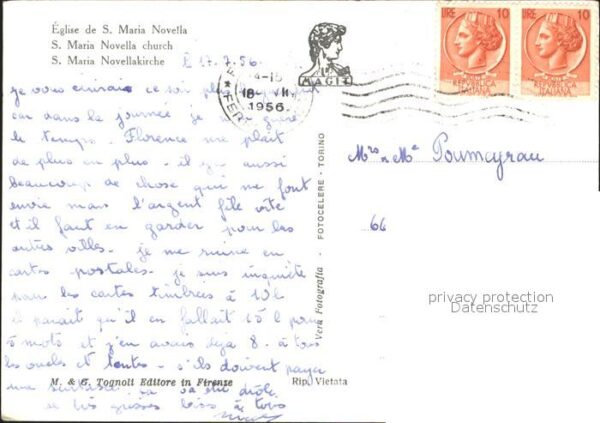 Église de S. Maria Novella
S. Maria Novella church
S. Maria Novellakirche
17.7.56
MAGIS
1956
LIRE 10
REPVBBLICA
ITALIANA
LIRE 10
REPVBBLICA
ITALIANA
je vous écrirais ce soir plus
car dans la journée je n'ai guère
le temps. Florence me plaît
de plus en plus - il y a aussi
beaucoup de chose qui me font
envie mais l'argent file vite
et il faut en garder pour les
autres villes. je me ruine en
cartes postales. je suis inquiète
pour les cartes timbrées à 10 l
il paraît qu'il en fallait 15 l pour
5 mots et j'en avais déjà 8 à tous
les oncles et tantes - s'ils doivent payer
une surtaxe ça va être drôle.
de très grosses bises à tous
Vera Fotografia - FOTOCELERE - TORINO
Mrs Me Poumeyrau
66
privacy protection
Datenschutz
M. & G. Tognoli Editore in Firenze
Rip. Vietata